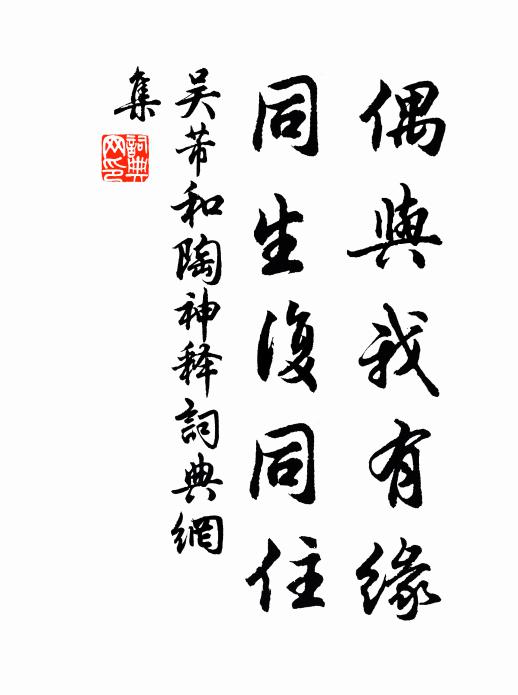 偶與我有緣
同生復同住
吴芾和陶神释詞典網
集
詞典網印